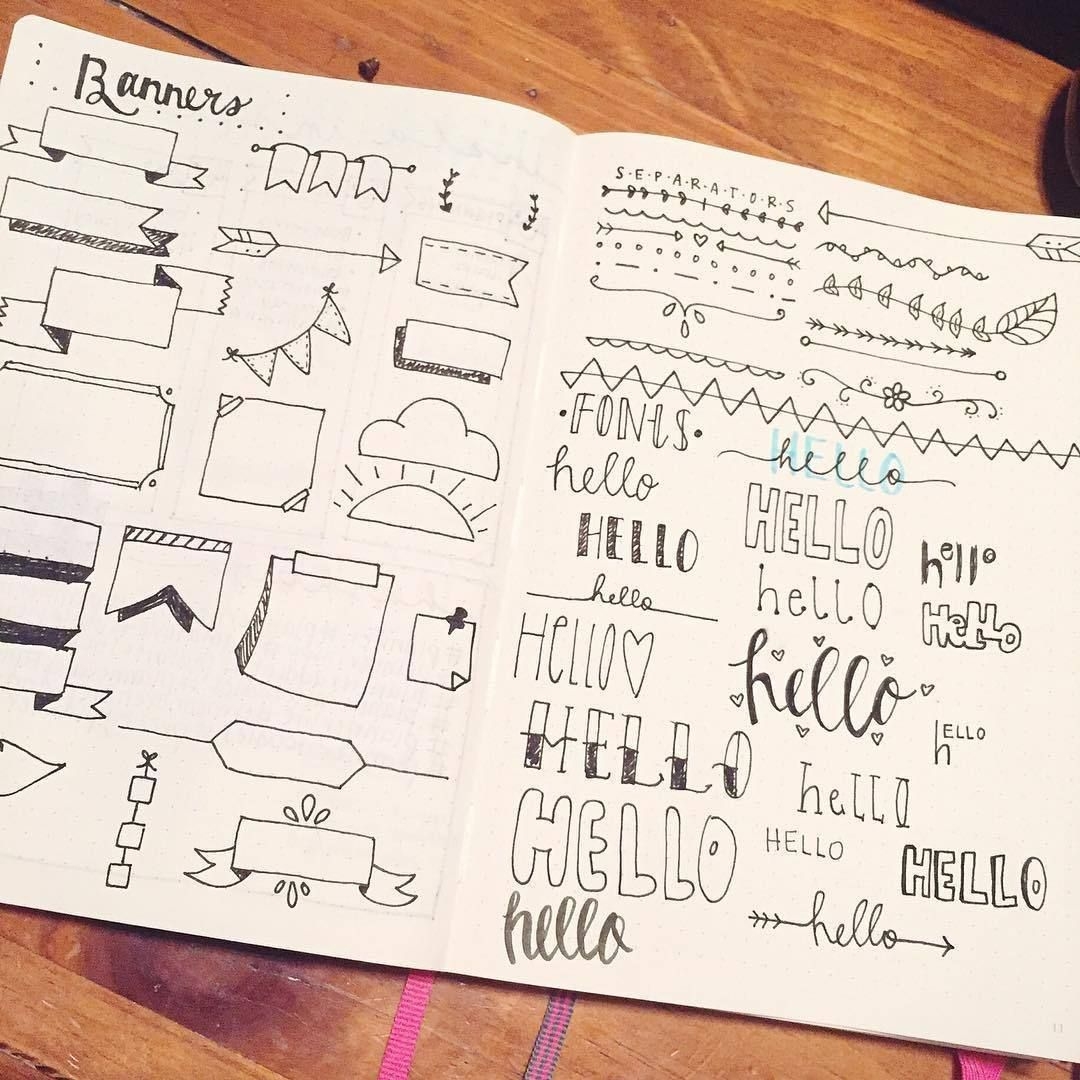 Banners
S·E·P·A·R·A·T·O·R·S
·FONtS·
hello
HELLO
hello
HellO♡
HELLO
HELLO
hello
HELLO
hello
HELLO
hello
heLLO
HeLLO
hello
hELLO
heLLO
HELLO
HELLO
hello